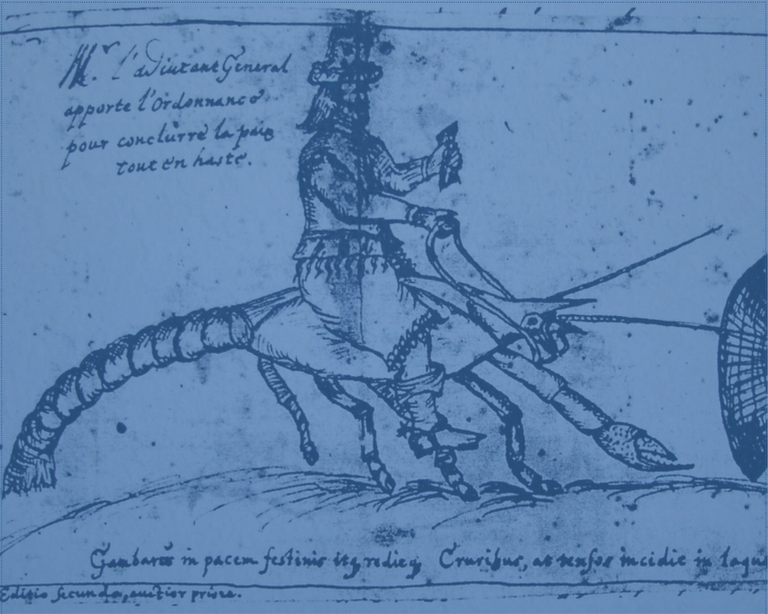 Mr. l'adiutant General
apporte l'ordonnance
pour conclurre la paix
tout en haste.
Gambarus in pacem festinis itq rediq Cruribus, at tensos incidit in laqu
Editio secunda, auctior priore.